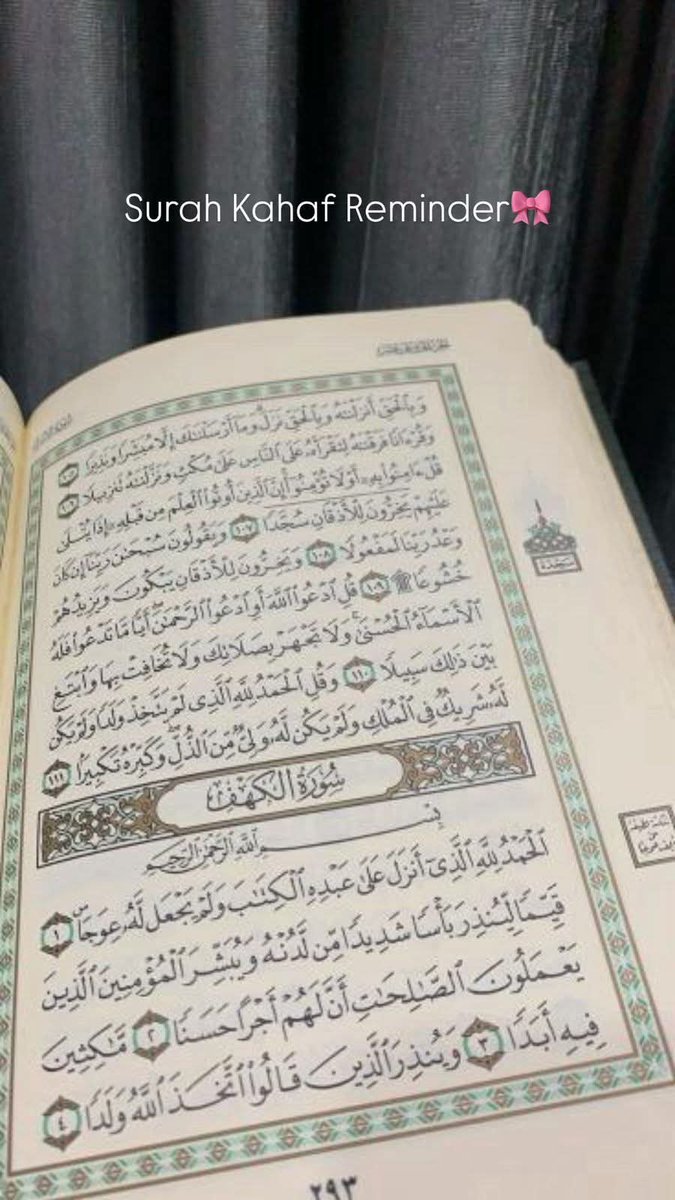 Surah Kahaf Reminder🎀
وَبِٱلۡحَقِّ أَنزَلۡنَٰهُ وَبِٱلۡحَقِّ نَزَلَۗ وَمَآ أَرۡسَلۡنَٰكَ إِلَّا مُبَشِّرٗا وَنَذِيرٗا ١٠٥
وَقُرۡءَانٗا فَرَقۡنَٰهُ لِتَقۡرَأَهُۥ عَلَى ٱلنَّاسِ عَلَىٰ مُكۡثٖ وَنَزَّلۡنَٰهُ تَنزِيلٗا ١٠٦
قُلۡ ءَامِنُواْ بِهِۦٓ أَوۡ لَا تُؤۡمِنُوٓاْۚ إِنَّ ٱلَّذِينَ أُوتُواْ ٱلۡعِلۡمَ مِن قَبۡلِهِۦٓ إِذَا يُتۡلَىٰ
عَلَيۡهِمۡ يَخِرُّونَۤ لِلۡأَذۡقَانِۤ سُجَّدٗاۤ ١٠٧ وَيَقُولُونَ سُبۡحَٰنَ رَبِّنَآ إِن كَانَ
وَعۡدُ رَبِّنَا لَمَفۡعُولٗا ١٠٨ وَيَخِرُّونَ لِلۡأَذۡقَانِ يَبۡكُونَ وَيَزِيدُهُمۡ
خُشُوعٗا ۩ ١٠٩ قُلِ ٱدۡعُواْ ٱللَّهَ أَوِ ٱدۡعُواْ ٱلرَّحۡمَٰنَۖ أَيّٗا مَّا تَدۡعُواْ فَلَهُ
ٱلۡأَسۡمَآءُ ٱلۡحُسۡنَىٰۚ وَلَا تَجۡهَرۡ بِصَلَاتِكَ وَلَا تُخَافِتۡ بِهَا وَٱبۡتَغِ
بَيۡنَ ذَٰلِكَ سَبِيلٗا ١١٠ وَقُلِ ٱلۡحَمۡدُ لِلَّهِ ٱلَّذِي لَمۡ يَتَّخِذۡ وَلَدٗا وَلَمۡ يَكُن
لَّهُۥ شَرِيكٞ فِي ٱلۡمُلۡكِ وَلَمۡ يَكُن لَّهُۥ وَلِيّٞ مِّنَ ٱلذُّلِّۖ وَكَبِّرۡهُ تَكۡبِيرَۢا ١١١
سجدة
سُورَةُ ٱلۡكَهۡفِ
بِسۡمِ ٱللَّهِ ٱلرَّحۡمَٰنِ ٱلرَّحِيمِ
ٱلۡحَمۡدُ لِلَّهِ ٱلَّذِيٓ أَنزَلَ عَلَىٰ عَبۡدِهِ ٱلۡكِتَٰبَ وَلَمۡ يَجۡعَل لَّهُۥ عِوَجَاۜ ١
قَيِّمٗا لِّيُنذِرَ بَأۡسٗا شَدِيدٗا مِّن لَّدُنۡهُ وَيُبَشِّرَ ٱلۡمُؤۡمِنِينَ ٱلَّذِينَ
يَعۡمَلُونَ ٱلصَّٰلِحَٰتِ أَنَّ لَهُمۡ أَجۡرًا حَسَنٗا ٢ مَّٰكِثِينَ
فِيهِ أَبَدٗا ٣ وَيُنذِرَ ٱلَّذِينَ قَالُواْ ٱتَّخَذَ ٱللَّهُ وَلَدٗا ٤
٢٩٣